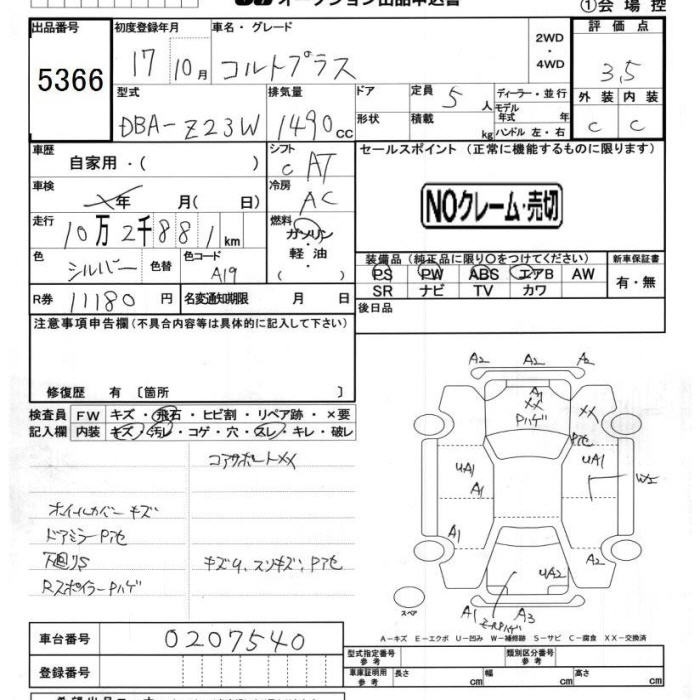 オークション出品申込書
①会場控
出品番号
5366
初度登録年月
17 10月
車名・グレード
コルトプラス
2WD
・
4WD
評価点
3.5
外装 内装
C C
型式
DBA-Z23W
排気量
1490cc
ドア
形状
定員 5人
積載 kg
ディーラー・並行
モデル年式 年
ハンドル 左・右
車歴
自家用・( )
シフト
C AT
車検
年 月( 日)
冷房
AC
走行
10万2千881km
燃料
ガソリン
軽・油
・( )
色
シルバー
色替
色コード
A19
R券 11180円
名変通知期限 月 日
セールスポイント (正常に機能するものに限ります)
NOクレーム・売切
装備品(純正品に限り○をつけてください)
新車保証書
PS PW ABS エアB AW
有・無
SR ナビ TV カワ
後日品
注意事項申告欄(不具合内容等は具体的に記入して下さい)
修復歴 有〔箇所 〕
検査員 FW キズ・飛石・ヒビ割・リペア跡・×要
記入欄 内装 キズ・汚レ・コゲ・穴・スレ・キレ・破レ
コアサポートXX
ホイールカバーキズ
ドアミラーPアセ
下回りS
キズ9、スリキズ、Pアセ
RスポイラーPハゲ
A2 A2 A2
A1
XX
Pハゲ
XX
Pアセ
UA1
A1
UA1
A1
A2
UA2
スペア
A1
A3
A-キズ E-エクボ U-凹み W-補修跡 S-サビ C-腐食 XX-交換済
車台番号
0207540
登録番号
型式指定番号 参考
類別区分番号 参考
車庫証明用 参考
長さ cm 幅 cm 高さ cm